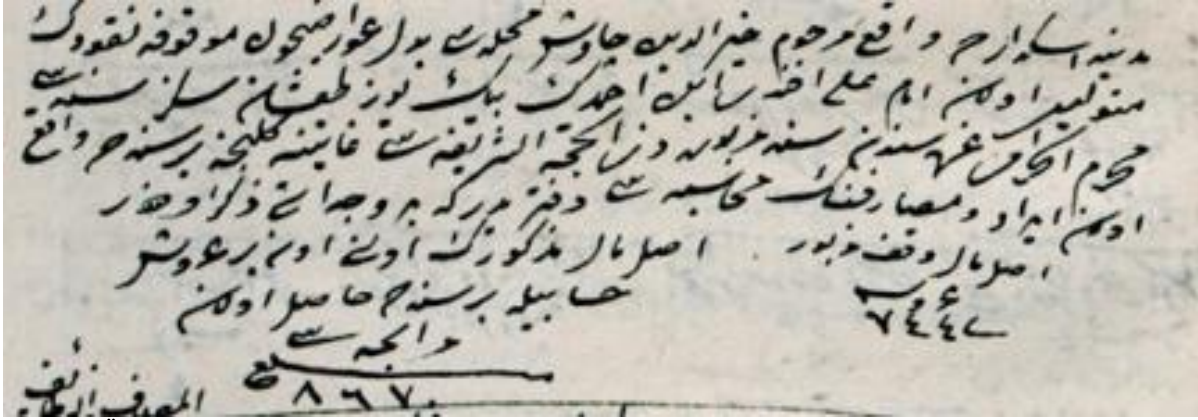 مدينه اسكدارده واقع مرحوم خير الدين چاوش محله سى بدل عوارضيچون موقوفه نقودك
متوليسى اولان امام على افندى ابن احمدك بيك يوز طقسان سكز سنه سى
محرم الحرامى غره سندن سنه مزبوره ذى الحجه الشريفه سى غايتنه كلنجه بر سنه ده واقع
اولان ايراد و مصارفنك محاسبه سى دفتريدركه بر وجه آتى ذكر اولنور
اصل مال وقف مزبور
٧٤٤٤
اصل مال مذكورك اونى اون بر غروش
حسابيله بر سنه ده حاصل اولان
مرابحه سى
مبلغ
٨٦٧
المصارف و الوظائف